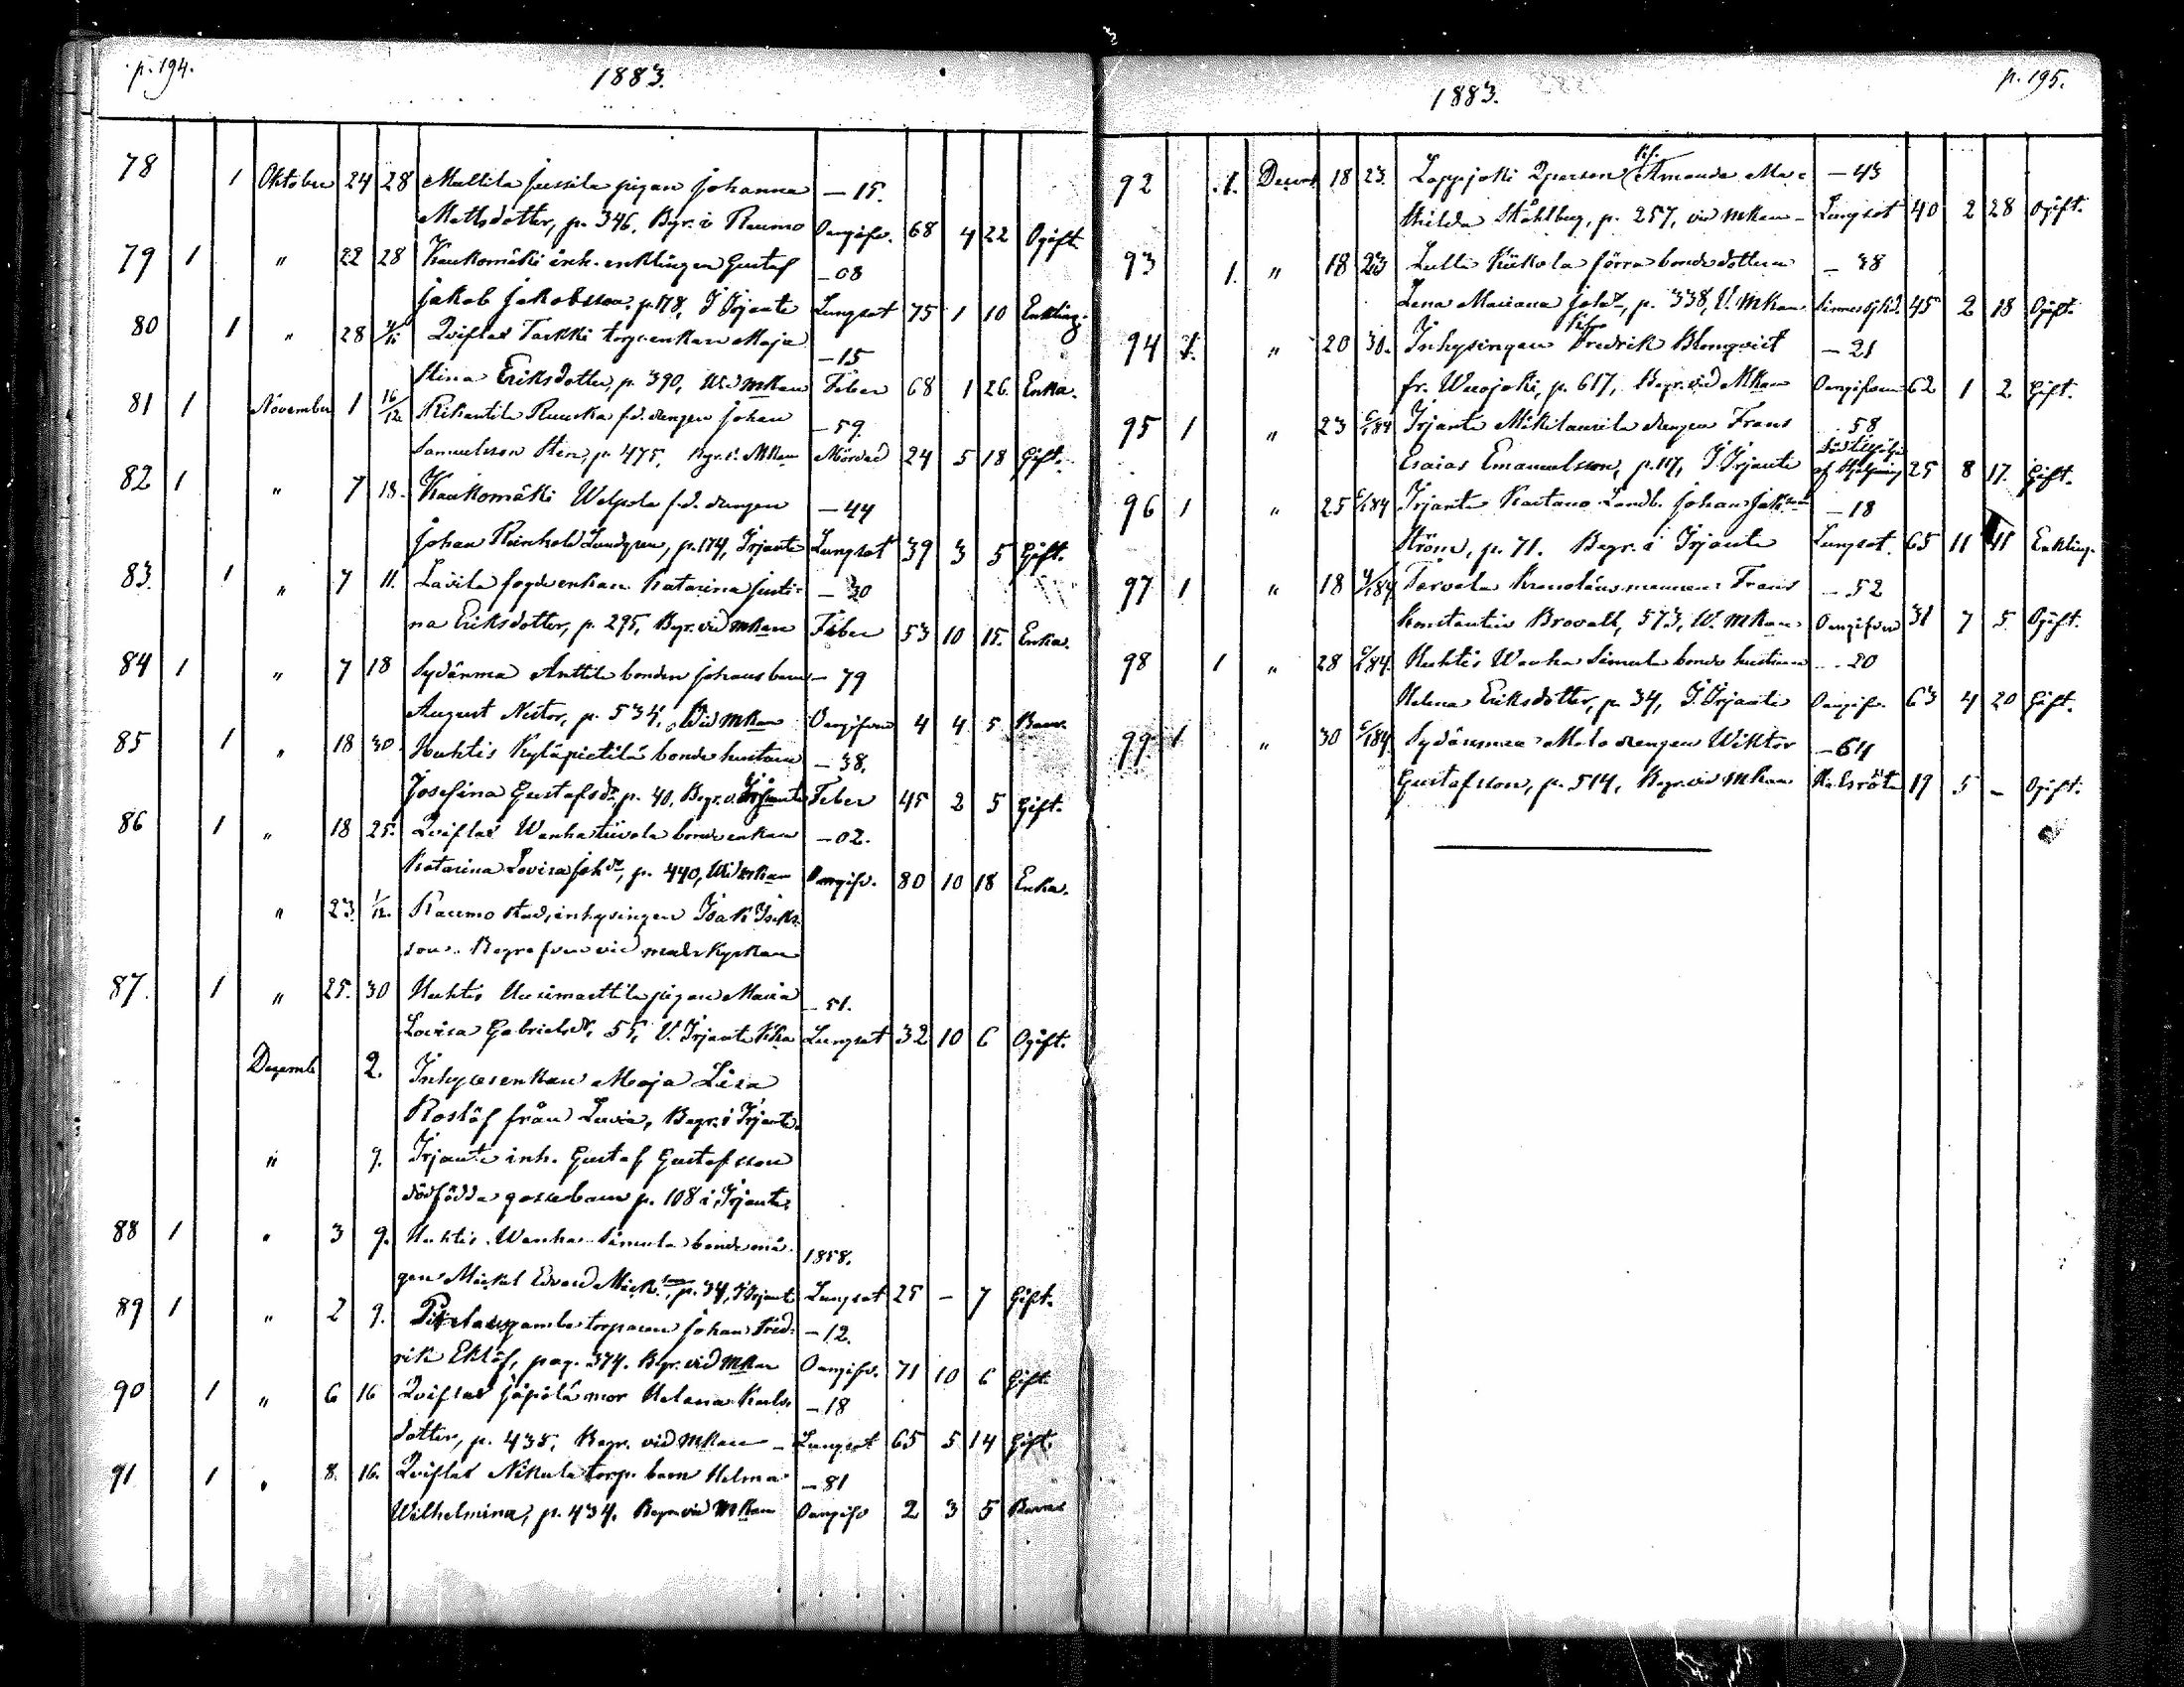 p. 194.
1883.
78 1 Oktober 24 28 Mattila Jussila pigan Johanna – 15.
Mattsdotter, p. 346, Begr. i Raumo Oangifv. 68 4 22 Ogift.
79 1 " 22 28 Kaukomäki inh. enklingen Gustaf – 08
Jakob Jakobsson, p. 178, I Irjante Lungsot 75 1 10 Enkling.
80 1 " 28 4/11 Qviflax Tarkki torp.enkan Maja – 15
Stina Eriksdotter, p. 390, Wid mkan Feber 68 1 26 Enka.
81 1 November 1 16/12 Rikantila Ruuska f.d. drengen Johan – 59.
Samuelsson Sten, p. 475, Begr. v. Mkan Mördad 24 5 18 Gift.
82 1 " 7 18. Kaukomäki Welpola f.d. drengen – 44
Johan Reinhold Lundgren, p. 174, Irjante Lungsot 39 3 5 Gift.
83. 1 " 7 11. Lavila fogdeenkan Katarina Justi- – 30
na Eriksdotter, p. 295, Begr. vid mkan Feber 53 10 15. Enka.
84 1 " 7 18 Sydänmaa Anttila bonden Johans barn – 79
August Nestor, p. 534, Wid mkan Oangifven 4 4 5 Barn.
85 1 " 18 30. Huhtis Kyläpietilä bonde hustrun – 38.
Josefina Gustafsdr. p. 40, Begr. v. Irjante Feber 45 2 5 Gift.
86 1 " 18 25. Qviflax Wanhatiivola bondeenkan – 02.
Katarina Lovisa Johdr, p. 440, Wid mkan Oangifv. 80 10 18 Enka.
" 23. 1/12. Raumo stad, inhysingen Isak Isaks-
son. Begrafven vid moderkyrkan
87. 1 " 25. 30 Huhtis Uusimarttila pigan Maria – 51.
Lovisa Gabrielsdr. 55, V. Irjante Kka Lungsot 32 10 6 Ogift.
Decemb 2. Inhysesenkan Maja Lisa
Roslöf från Luvia, Begr. i Irjante.
" 9. Irjante inh. Gustaf Gustafsson
dödfödda gossebarn p. 108 i Irjante.
88 1 " 3 9. Huhtis Wanha Simula bondemå- 1858.
gen Mickel Edvard Mick.son, p. 34, I Irjante Lungsot 25 – 7 Gift.
89 1 " 2 9. torparen Johan Fred- – 12.
rik Eklöf, pag. 374. Begr. vid mkan Oangifv. 71 10 6 Gift.
90 1 " 6 16 Qviflax Jäpilä mor Helena Karls- – 18
dotter, p. 435, Begr. vid mkan – Lungsot 65 5 14 Gift.
91 1 " 8. 16. Qviflax Nikula torp. barn Helma – 81
Wilhelmina, p. 434. Begr. vid mkan Oangifv 2 3 5 Barn
p. 195.
1883.
92 1. Decemb 18 23. Lappjoki Qperson Amanda Ma- – 43
thilda Ståhlberg, p. 257, vid mkan – Lungsot 40 2 28 Ogift.
93 1. " 18 23 Lutta Kiikola förra bondedottern – 38
Lena Mariana Johdr, p. 338, V. mkan Sinnessjkd. 45 2 18 Ogift.
94 1. " 20 30. Inhysingen Fredrik Blomqvist – 21
fr. Wuojoki, p. 617, Begr. vid Mkan Oangifven 62 1 2 Gift.
95 1 " 23 6/1 84 Irjante Mikilaurila drengen Frans – 58
Esaias Emanuelsson, p. 117, I Irjante af 25 8 17. Gift.
96 1 " 25 6/1 84 Irjante Kaitano Landb. Johan Jak.son – 18
Ström, p. 71. Begr. i Irjante Lungsot. 65 11 11 Enkling.
97 1 " 18 4/1 84 Torvola Kronolänsmannen Frans – 52
Konstantin Brovall, 573, W. Mkan Oangifven 31 7 5 Ogift.
98 1 " 28 6/1 84. Huhtis Wanha Simula bonde hustrun – 20
Helena Eriksdotter, p. 34, I. Irjante Oangifv. 63 4 20 Gift.
99 1 " 30 6/1 84 Sydänmaa Malo drengen Wiktor – 64
Gustafsson, p. 514, Begr. vid mkan Halsröta 19 5 – Ogift.